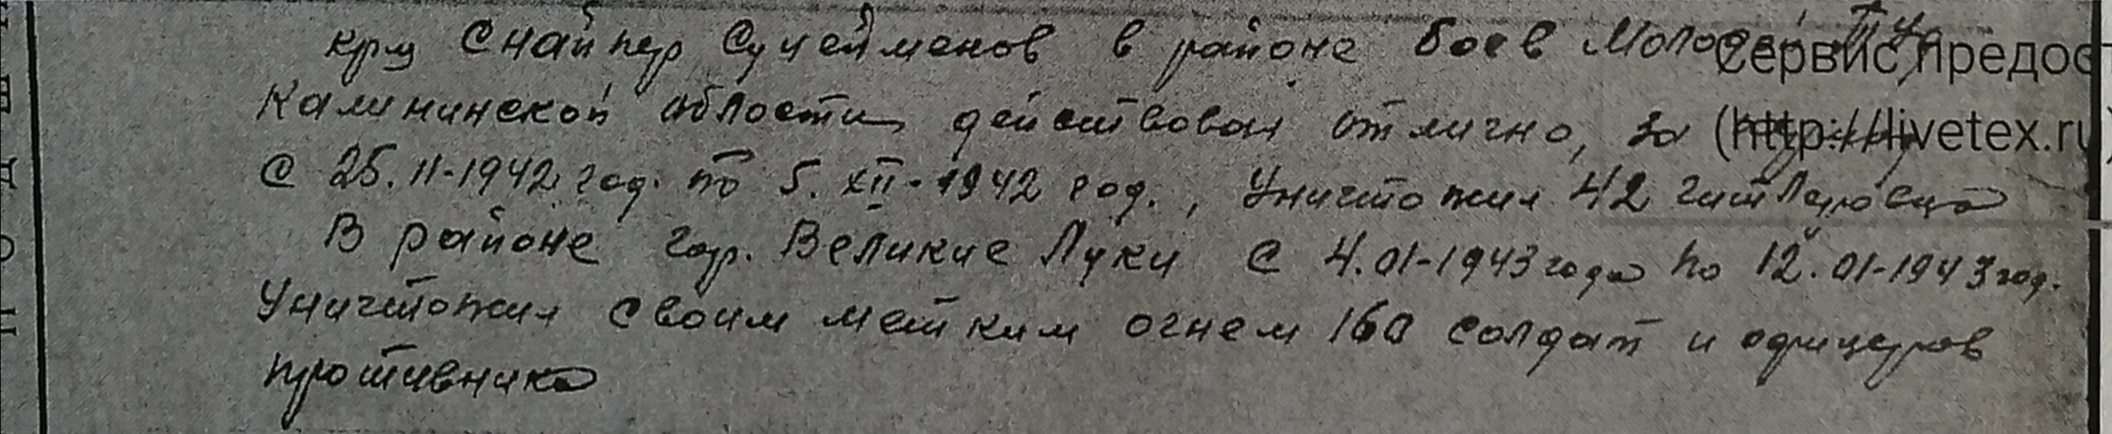 кр-ц Снайпер Сулейменов в районе боев Молодой Туд
Калининской области действовал отлично, за
с 25.11-1942 год. по 5. XII-1942 год., Уничтожил 42 гитлеровца
В районе гор. Великие Луки с 4.01-1943 года по 12.01-1943 год.
Уничтожил своим метким огнем 160 солдат и офицеров
противника
Сервис предос
(http://livetex.ru)